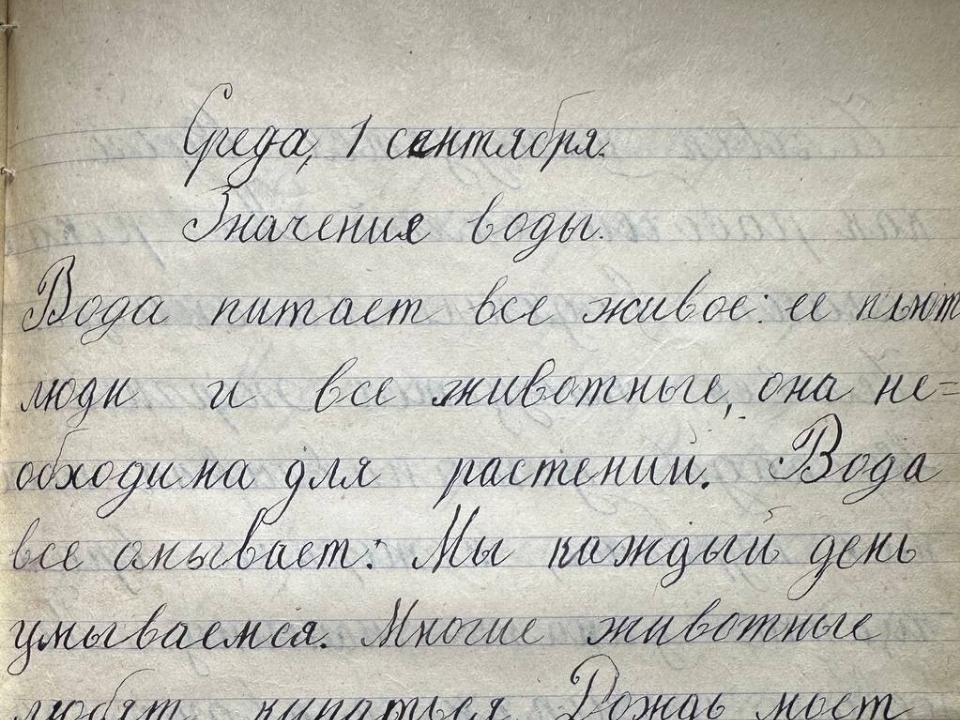 Среда, 1 сентября.
Значение воды.
Вода питает все живое: ее пьют
люди и все животные, она не=
обходима для растений. Вода
все омывает: Мы каждый день
умываемся. Многие животные
любят купаться. Дождь моет